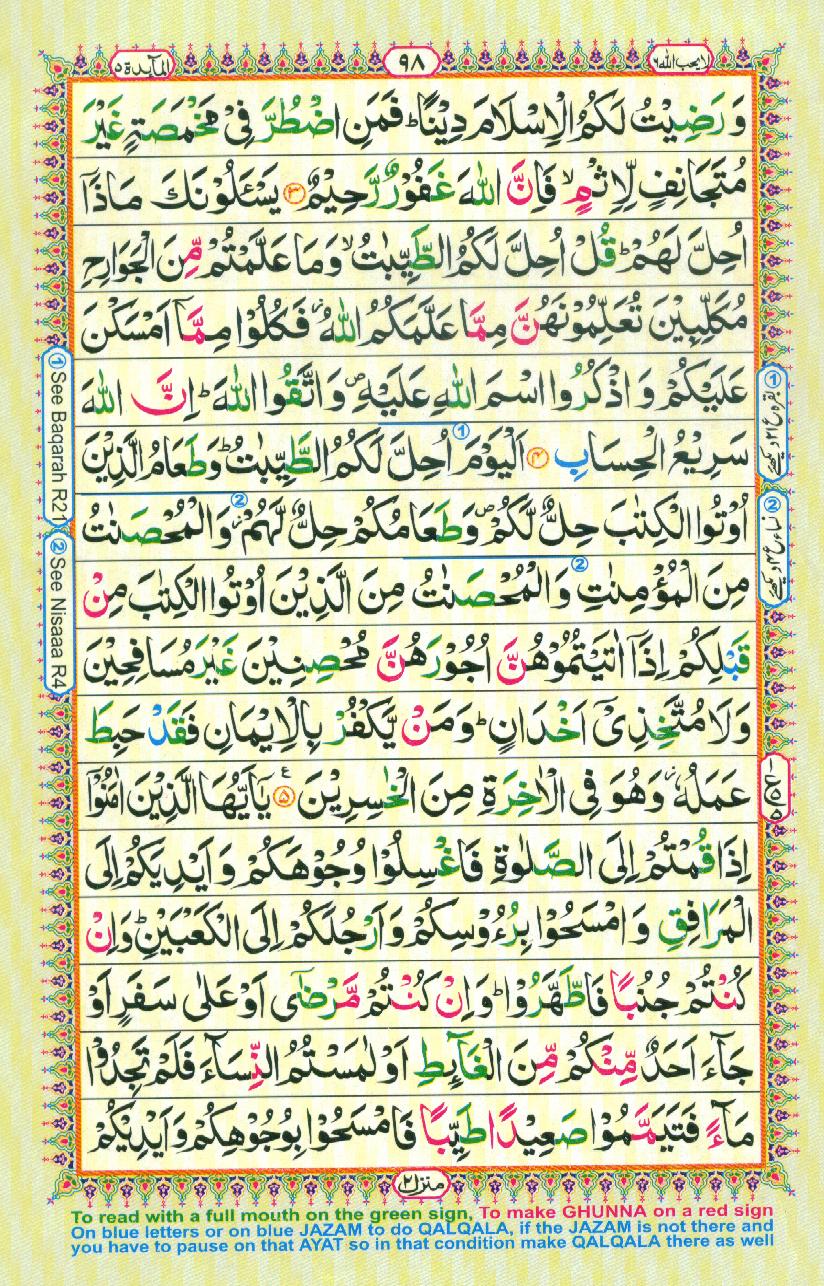 لا يحب الله ٦
٩٨
المآئدة ٥
وَرَضِيْتُ لَكُمُ الْاِسْلَامَ دِيْنًا ؕ فَمَنِ اضْطُرَّ فِيْ مَخْمَصَةٍ غَيْرَ
مُتَجَانِفٍ لِّاِثْمٍ ۙ فَاِنَّ اللّٰهَ غَفُوْرٌ رَّحِيْمٌ ۝۳ يَسْـَٔلُوْنَكَ مَاذَاۤ
اُحِلَّ لَهُمْ ؕ قُلْ اُحِلَّ لَكُمُ الطَّيِّبٰتُ ۙ وَمَا عَلَّمْتُمْ مِّنَ الْجَوَارِحِ
مُكَلِّبِيْنَ تُعَلِّمُوْنَهُنَّ مِمَّا عَلَّمَكُمُ اللّٰهُ ؗ فَكُلُوْا مِمَّاۤ اَمْسَكْنَ
عَلَيْكُمْ وَاذْكُرُوا اسْمَ اللّٰهِ عَلَيْهِ ۪ وَاتَّقُوا اللّٰهَ ؕ اِنَّ اللّٰهَ
سَرِيْعُ الْحِسَابِ ۝۴ اَلْيَوْمَ ① اُحِلَّ لَكُمُ الطَّيِّبٰتُ ؕ وَطَعَامُ الَّذِيْنَ
اُوْتُوا الْكِتٰبَ حِلٌّ لَّكُمْ ۪ وَطَعَامُكُمْ حِلٌّ لَّهُمْ ؗ ② وَالْمُحْصَنٰتُ
مِنَ الْمُؤْمِنٰتِ ② وَالْمُحْصَنٰتُ مِنَ الَّذِيْنَ اُوْتُوا الْكِتٰبَ مِنْ
قَبْلِكُمْ اِذَاۤ اٰتَيْتُمُوْهُنَّ اُجُوْرَهُنَّ مُحْصِنِيْنَ غَيْرَ مُسَافِحِيْنَ
وَلَا مُتَّخِذِيْۤ اَخْدَانٍ ؕ وَمَنْ يَّكْفُرْ بِالْاِيْمَانِ فَقَدْ حَبِطَ
عَمَلُهٗ ؗ وَهُوَ فِي الْاٰخِرَةِ مِنَ الْخٰسِرِيْنَ ۝۵ يٰۤاَيُّهَا الَّذِيْنَ اٰمَنُوْۤا
اِذَا قُمْتُمْ اِلَى الصَّلٰوةِ فَاغْسِلُوْا وُجُوْهَكُمْ وَاَيْدِيَكُمْ اِلَى
الْمَرَافِقِ وَامْسَحُوْا بِرُءُوْسِكُمْ وَاَرْجُلَكُمْ اِلَى الْكَعْبَيْنِ ؕ وَاِنْ
كُنْتُمْ جُنُبًا فَاطَّهَّرُوْا ؕ وَاِنْ كُنْتُمْ مَّرْضٰۤى اَوْ عَلٰى سَفَرٍ اَوْ
جَآءَ اَحَدٌ مِّنْكُمْ مِّنَ الْغَآئِطِ اَوْ لٰمَسْتُمُ النِّسَآءَ فَلَمْ تَجِدُوْا
مَآءً فَتَيَمَّمُوْا صَعِيْدًا طَيِّبًا فَامْسَحُوْا بِوُجُوْهِكُمْ وَاَيْدِيْكُمْ
① See Baqarah R21
② See Nisaaa R4
منزل ٢
To read with a full mouth on the green sign, To make GHUNNA on a red sign
On blue letters or on blue JAZAM to do QALQALA, if the JAZAM is not there and
you have to pause on that AYAT so in that condition make QALQALA there as well